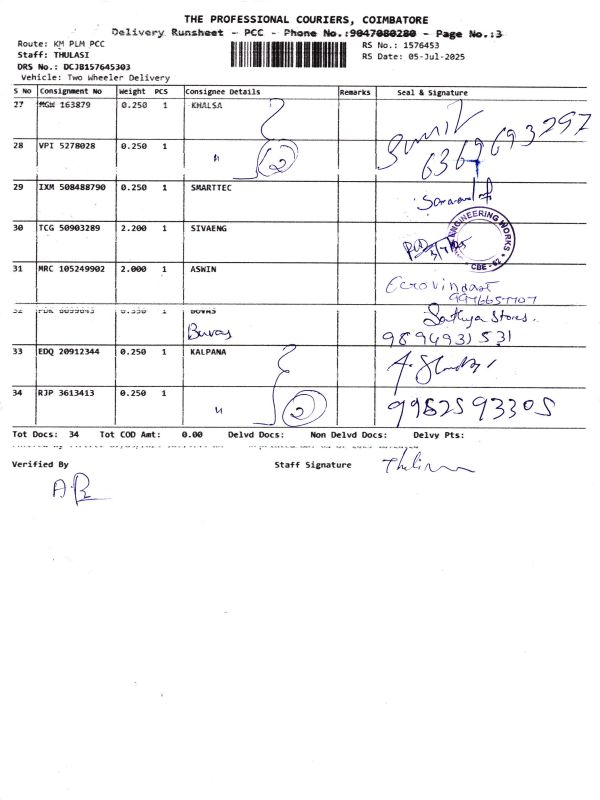 THE PROFESSIONAL COURIERS, COIMBATORE
Delivery Runsheet - PCC - Phone No.:9047080280 - Page No.:3
Route: KM PLM PCC
RS No.: 1576453
Staff: THULASI
RS Date: 05-Jul-2025
DRS No.: DCJB157645303
Vehicle: Two Wheeler Delivery
S No Consignment No Weight PCS Consignee Details Remarks Seal & Signature
27 MGW 163879 0.250 1 KHALSA
28 VPI 5278028 0.250 1 " 2
6369693297
29 IXM 508488790 0.250 1 SMARTTEC
30 TCG 50903289 2.200 1 SIVAENG
ENGINEERING WORKS * CBE-62 *
31 MRC 105249902 2.000 1 ASWIN
32 0.350 1 BUVAS
Buvas
Sathya Stores.
9894931531
33 EDQ 20912344 0.250 1 KALPANA
34 RJP 3613413 0.250 1 " 2
9982593305
Tot Docs: 34 Tot COD Amt: 0.00 Delvd Docs: Non Delvd Docs: Delvy Pts:
Verified By
Staff Signature